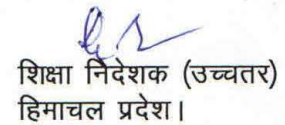 शिक्षा निदेशक (उच्चतर)
हिमाचल प्रदेश।